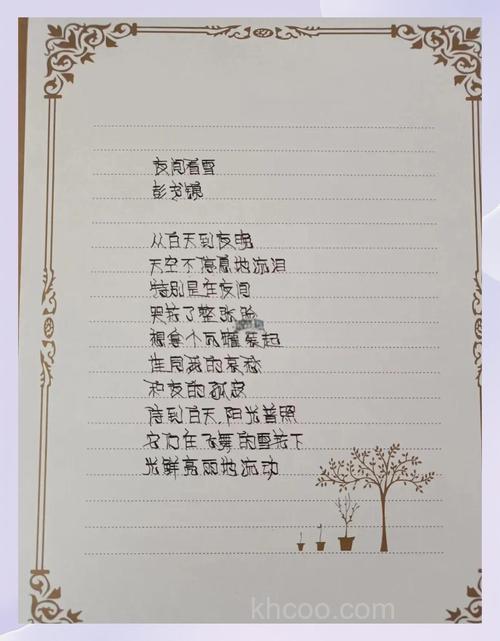 夜间看雪
彭步镜
从白天到夜晚
天空不停息地流泪
特别是在夜间
哭花了整张脸
想拿个瓦罐装起
连同我的哀愁
和夜的孤寂
待到白天，阳光普照
它们在飞舞的雪花下
光鲜亮丽地流动
khcoo.com